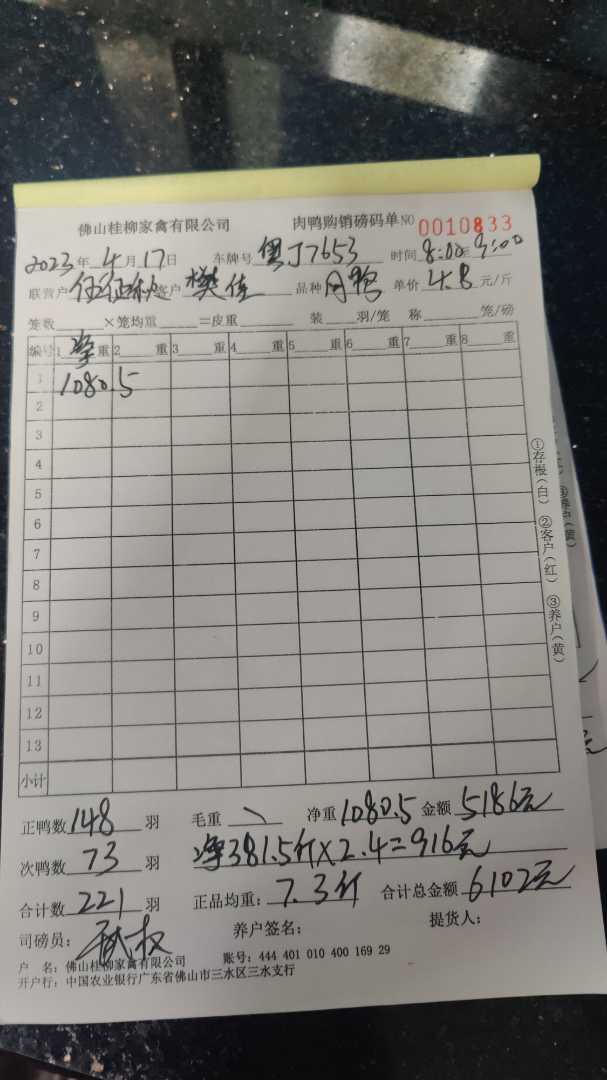 佛山桂柳家禽有限公司 肉鸭购销磅码单 NO 0010833
2023年4月17日 车牌号 粤J7653 时间 8:00至9:00
联营户 客户 樊佳 品种 单价 4.8 元/斤
笼数 ×笼均重 =皮重 装 羽/笼 称 笼/磅
编号 1 净重 2 重 3 重 4 重 5 重 6 重 7 重 8 重
1 1080.5
2
3
4
5
6
7
8
9
10
11
12
13
小计
①存根(白) ②客户(红) ③养户(黄)
正鸭数 148 羽 毛重 净重 1080.5 金额 5186元
次鸭数 73 羽 净381.5斤×2.4=916元
合计数 221 羽 正品均重: 7.3斤 合计总金额 6102元
司磅员: 养户签名: 提货人:
户 名: 佛山桂柳家禽有限公司 账号: 444 401 010 400 169 29
开户行: 中国农业银行广东省佛山市三水区三水支行